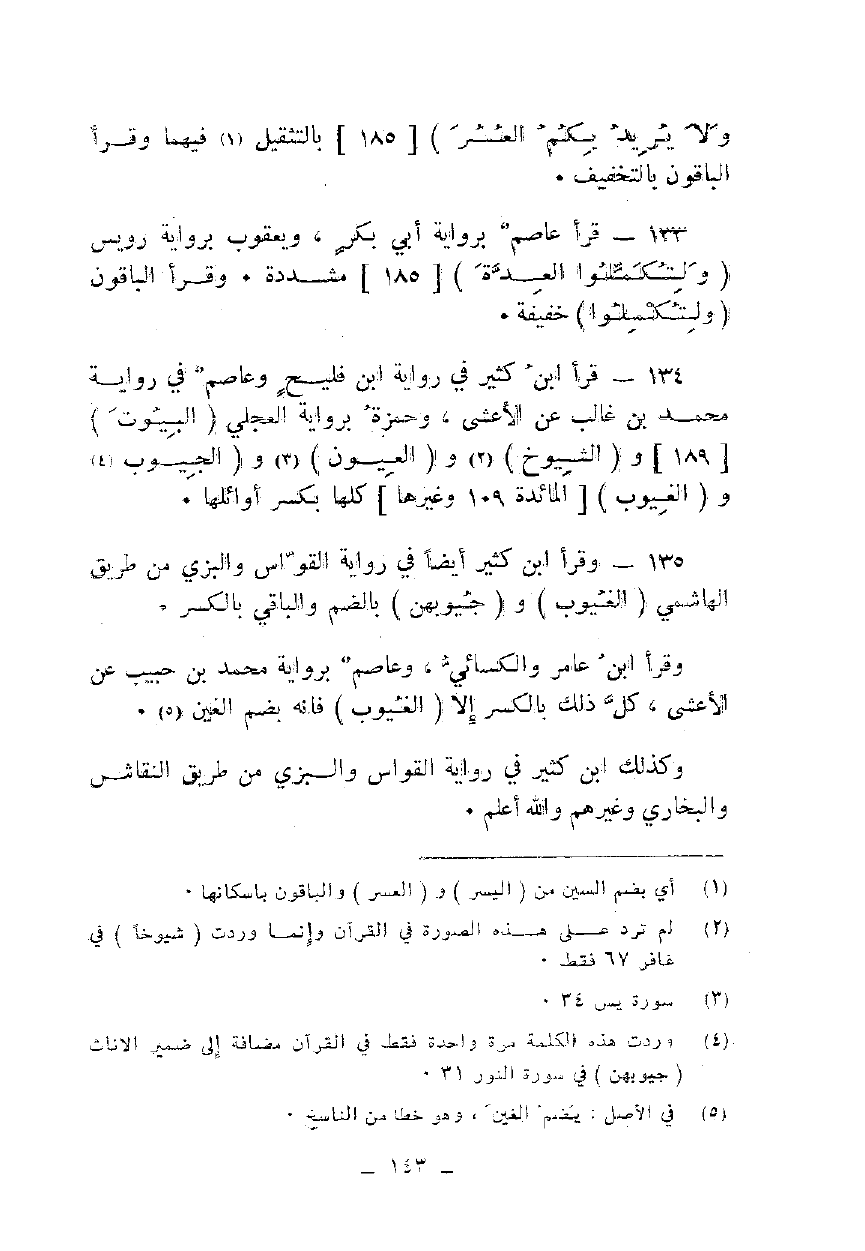 وَلاَ يُرِيدُ بِكُمُ العُسُرَ ) [ ١٨٥ ] بالتثقيل (١) فيهما وقرأ
الباقون بالتخفيف ٠
١٣٣ — قرأ عاصمٌ برواية أبي بكرٍ ، ويعقوب برواية رويس
( وَلِتُكَمِّلُوا العِدَّةَ ) [ ١٨٥ ] مشددة ٠ وقرأ الباقون
( ولِتُكْمِلُوا ) خفيفة ٠
١٣٤ — قرأ ابنُ كثير في رواية ابن فليحٍ وعاصمٌ في رواية
محمد بن غالب عن الأعشى ، وحمزةُ برواية العجلي ( البِيُوتَ )
[ ١٨٩ ] و ( الشِيوخ ) (٢) و ( العِيون ) (٣) و ( الجِيوب (٤)
و ( الغِيوب ) [ المائدة ١٠٩ وغيرها ] كلها بكسر أوائلها ٠
١٣٥ — وقرأ ابن كثير أيضاً في رواية القوّاس والبزي من طريق
الهاشمي ( الغُيوب ) و ( جُيوبهن ) بالضم والباقي بالكسر ٠
وقرأ ابنُ عامر والكسائيُّ ، وعاصمٌ برواية محمد بن حبيب عن
الأعشى ، كلَّ ذلك بالكسر إلا ( الغُيوب ) فانه بضم الغين (٥) ٠
وكذلك ابن كثير في رواية القواس والبزي من طريق النقاش
والبخاري وغيرهم والله أعلم ٠
(١) أي بضم السين من ( اليسر ) و ( العسر ) والباقون باسكانها ٠
(٢) لم ترد على هذه الصورة في القرآن وإنما وردت ( شيوخاً ) في
غافر ٦٧ فقط ٠
(٣) سورة يس ٣٤ ٠
(٤) وردت هذه الكلمة مرة واحدة فقط في القرآن مضافة إلى ضمير الاناث
( جيوبهن ) في سورة النور ٣١ ٠
(٥) في الأصل : يَضمُ الغينَ ، وهو خطا من الناسخ ٠
— ١٤٣ —